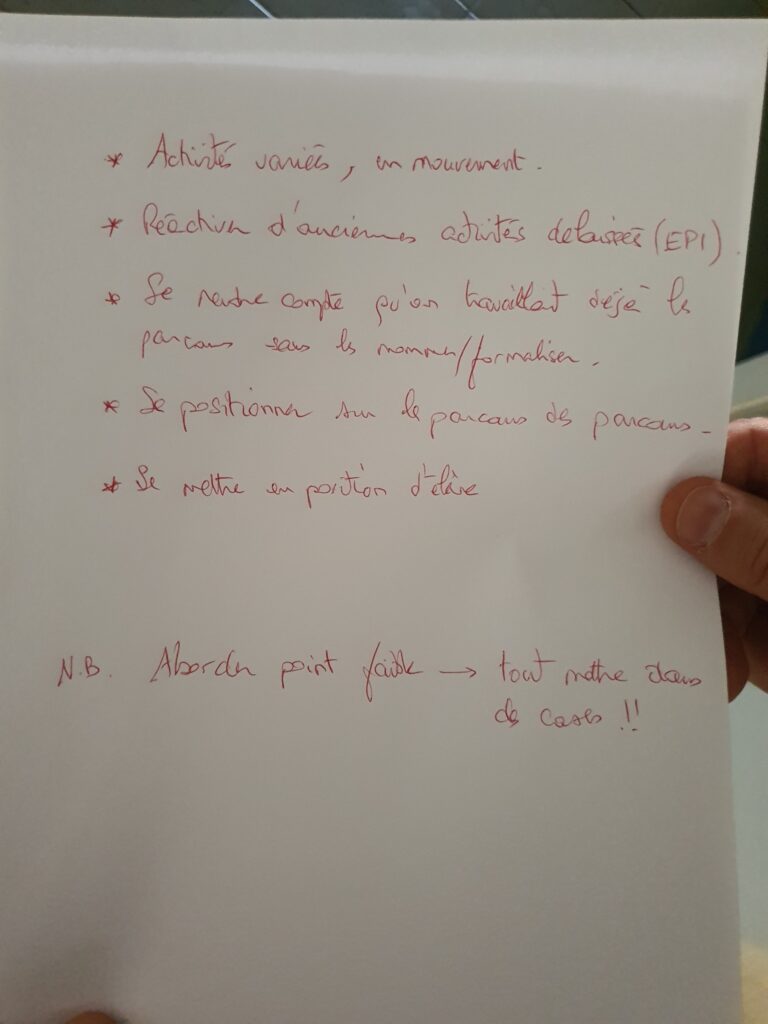 * Activités variées, en mouvement.
* Réactiver d'anciennes activités délaissées (EPI).
* Se rendre compte qu'on travaillait déjà les
parcours sans les nommer/formaliser.
* Se positionner sur le parcours des parcours.
* Se mettre en position d'élève
N.B. Aborder point faible → tout mettre dans
des cases !!